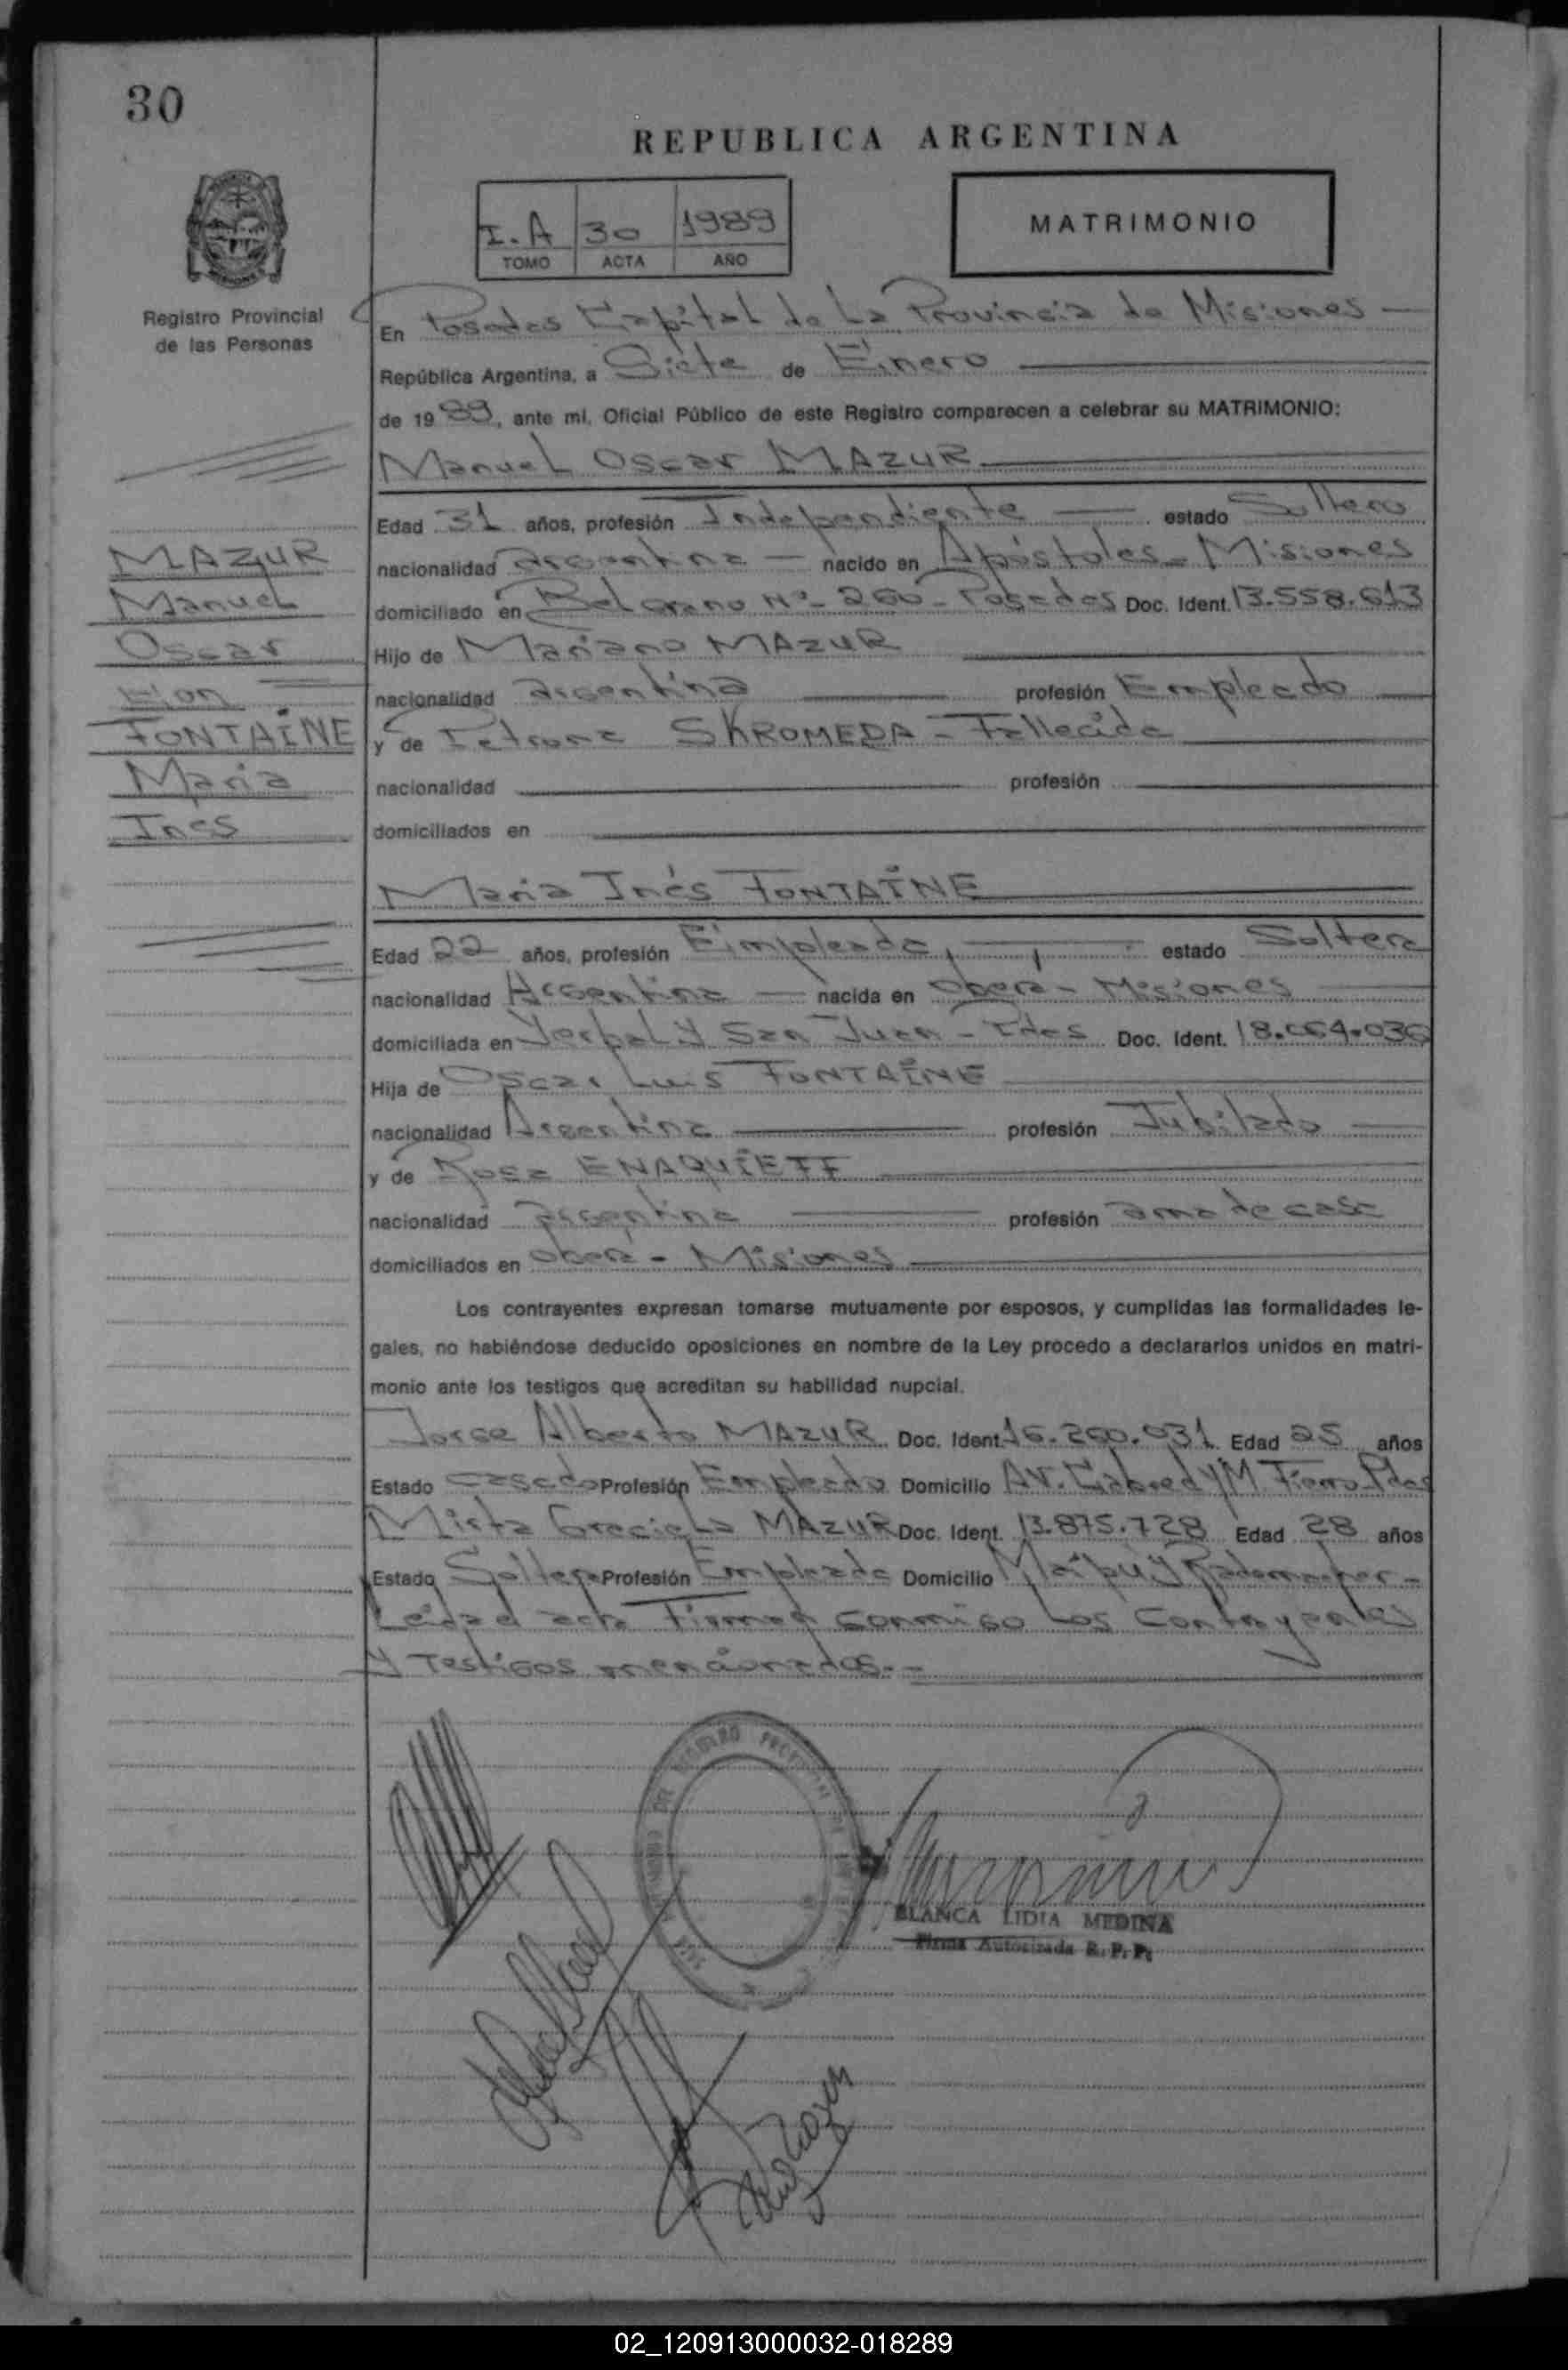 30
REPUBLICA ARGENTINA
I.A 30 1989
TOMO ACTA AÑO
MATRIMONIO
Registro Provincial
de las Personas
En Posadas Capital de La Provincia de Misiones
República Argentina, a Siete de Enero
de 1989, ante mi, Oficial Público de este Registro comparecen a celebrar su MATRIMONIO:
Manuel Oscar MAZUR
Edad 31 años, profesión Independiente estado Soltero
nacionalidad argentina nacido en Apóstoles - Misiones
domiciliado en Belgrano Nº 260 - Posadas Doc. Ident. 13.558.613
Hijo de Mariano MAZUR
nacionalidad argentina profesión Empleado
y de Petrona SKROMEDA - Fallecida
nacionalidad profesión
domiciliados en
MAZUR
Manuel
Oscar
con
FONTAINE
Maria
Ines
Maria Inés FONTAINE
Edad 22 años, profesión Empleada, estado Soltera
nacionalidad Argentina nacida en Obera - Misiones
domiciliada en Yerbal y San Juan - Pdas Doc. Ident. 18.064.036
Hija de Oscar Luis FONTAINE
nacionalidad Argentina profesión Jubilado
y de Rosa ENAQUIEFF
nacionalidad argentina profesión ama de casa
domiciliados en Obera - Misiones
Los contrayentes expresan tomarse mutuamente por esposos, y cumplidas las formalidades le-
gales, no habiéndose deducido oposiciones en nombre de la Ley procedo a declararlos unidos en matri-
monio ante los testigos que acreditan su habilidad nupcial.
Jorge Alberto MAZUR Doc. Ident. 16.260.031 Edad 25 años
Estado casado Profesión Empleado Domicilio AV. Cabred y M. Fierro Pdas
Mirta Graciela MAZUR Doc. Ident. 13.875.728 Edad 28 años
Estado Soltera Profesión Empleada Domicilio Maipu y Rademacher -
Leida el acta Firman conmigo Los Contrayentes
y Testigos mencionados.-
BLANCA LIDIA MEDINA
Firma Autorizada R. P. P.
02_120913000032-018289